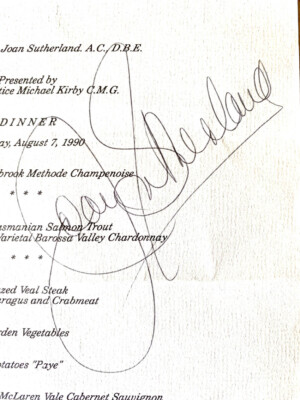 Joan Sutherland. A.C., D.B.E.
Presented by
tice Michael Kirby C.M.G.
DINNER
ay, August 7, 1990
brook Methode Champenoise
* * *
asmanian Salmon Trout
Varietal Barossa Valley Chardonnay
* * *
zed Veal Steak
aragus and Crabmeat
rden Vegetables
otatoes "Paye"
McLaren Vale Cabernet Sauvignon
Joan Sutherland